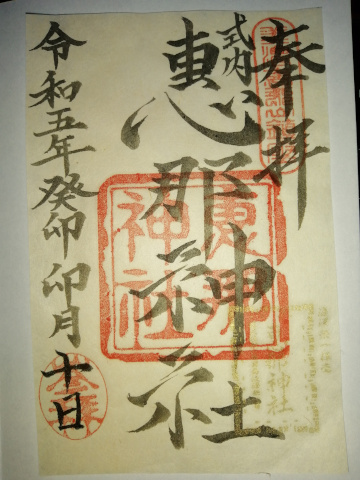 奉拝
式内
惠那神社
令和五年癸卯卯月十日
惠那
神社
神社